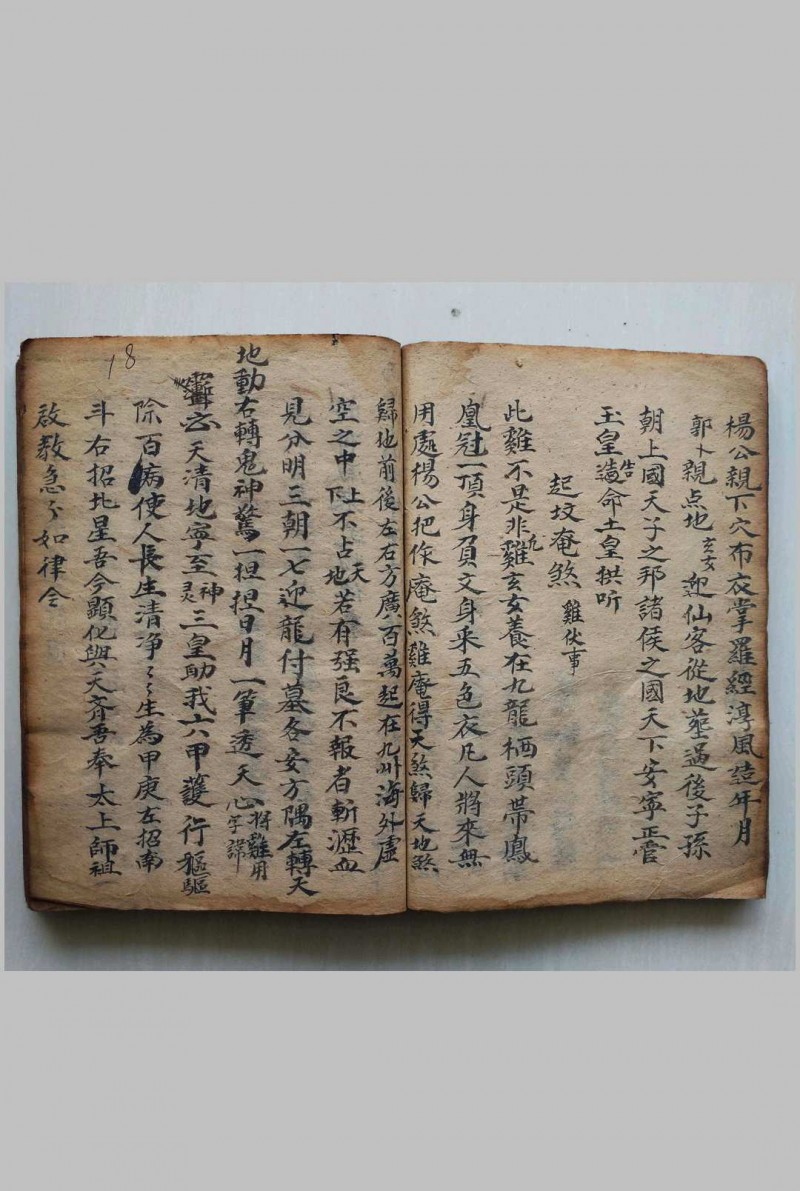 楊公親下穴布衣掌羅經淳風造年月
郭卜親点地玄女迎仙客從地塟過後子孫
朝上國天子之邦諸侯之國天下安寧正管
玉皇造告命土皇拱听
起坟庵煞 雞伏事
此雞不是非雞九玄女養在九龍栖頭帶鳳
凰冠一頂身負文身釆五色衣凡人將來無
用處楊公把作庵煞雞庵得天煞歸天地煞
歸地前後左右方廣八百萬起在九州海外虛
空之中上下不占天地若有强良不報者斬瀝血
見分明三朝一七迎龍付墓各安方隅左轉天
地動右轉鬼神驚一担担日月一筆透天心将雞用
天清地寧至神灵三皇助我六甲護行驅
除百病使人長生清净〻生為甲庚左招南
斗右招北星吾今顯化與天齊吾奉太上師祖
啟教急〻如律令
18